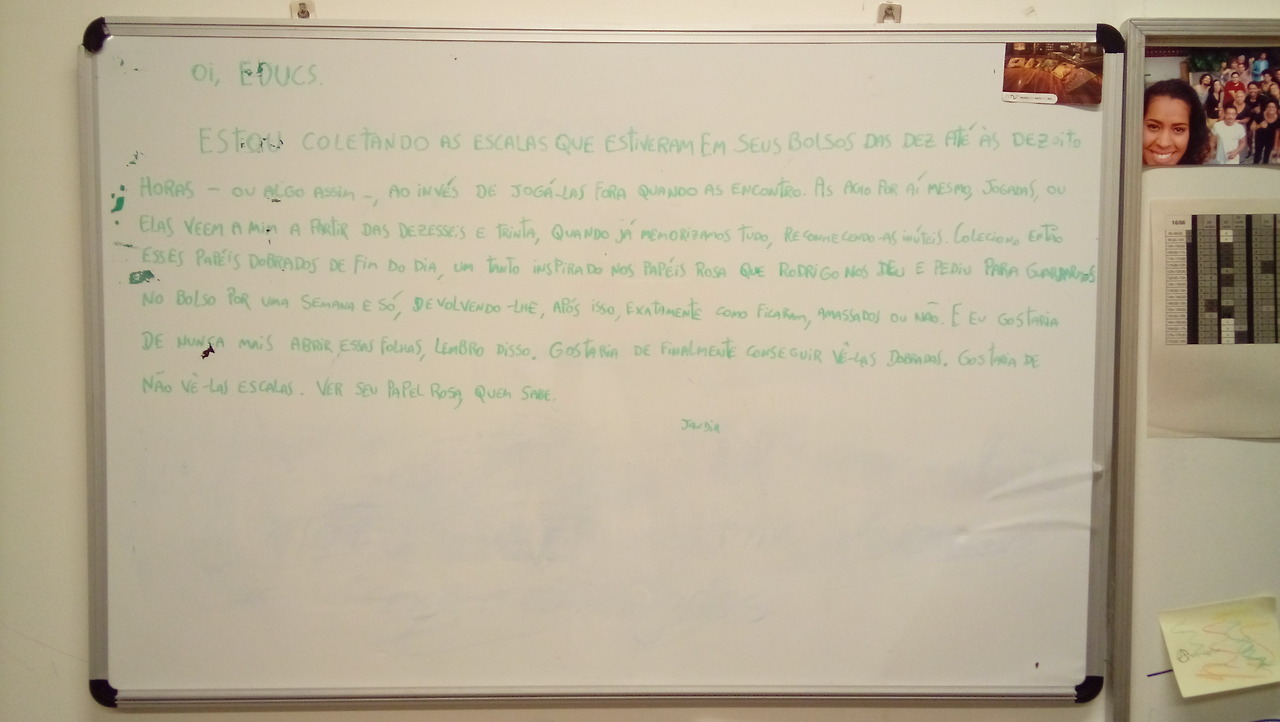 OI, EDUCS.
ESTOU COLETANDO AS ESCALAS QUE ESTIVERAM EM SEUS BOLSOS DAS DEZ ATÉ ÀS DEZOITO
HORAS - OU ALGO ASSIM -, AO INVÉS DE JOGÁ-LAS FORA QUANDO AS ENCONTRO. AS ACHO POR AÍ MESMO, JOGADAS, OU
ELAS VEEM A MIM A PARTIR DAS DEZESSEIS E TRINTA, QUANDO JÁ MEMORIZAMOS TUDO, RECONHECENDO-AS INÚTEIS. COLECIONO ENTÃO
ESSES PAPÉIS DOBRADOS DE FIM DO DIA, UM TANTO INSPIRADO NOS PAPÉIS ROSA QUE RODRIGO NOS DEU E PEDIU PARA GUARDARMOS
NO BOLSO POR UMA SEMANA E SÓ, DEVOLVENDO-LHE, APÓS ISSO, EXATAMENTE COMO FICARAM, AMASSADOS OU NÃO. E EU GOSTARIA
DE NUNCA MAIS ABRIR ESSAS FOLHAS, LEMBRO DISSO. GOSTARIA DE FINALMENTE CONSEGUIR VÊ-LAS DOBRADAS. GOSTARIA DE
NÃO VÊ-LAS ESCALAS. VER SEU PAPEL ROSA, QUEM SABE.